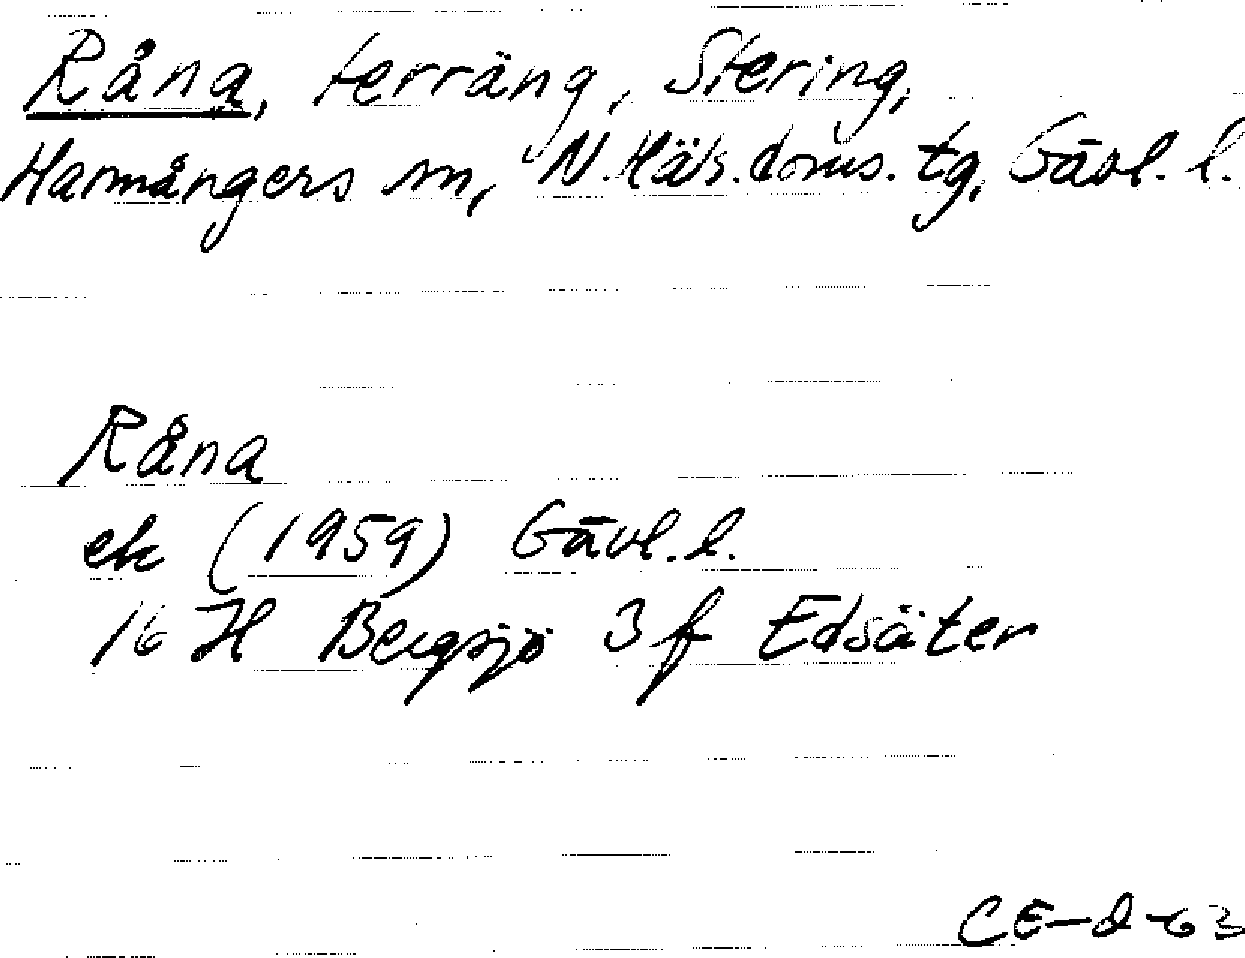 Råna, terräng, Stering,
Harmångers sn, N. Häls. doms. tg, Gävl. l.
Råna
ek (1959) Gävl. l.
16 H Bergsjö 3 f Edsäter
CE-d-63